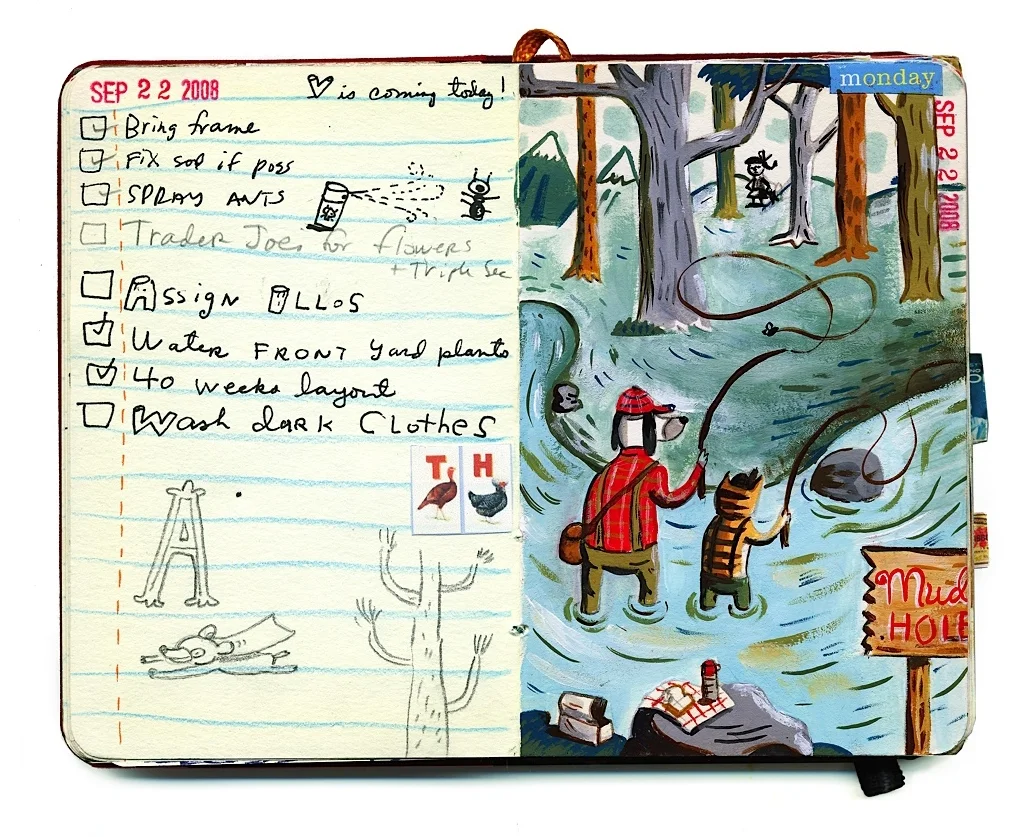 SEP 2 2 2008
♡ is coming today!
Bring frame
Fix sop if poss
SPRAY ANTS
Trader Joes for flowers
+ Triple Sec
Assign
Water FRONT yard plants
40 weeks layout
Wash dark Clothes
T H
A
monday
SEP 2 2 2008
Mud
HOLE